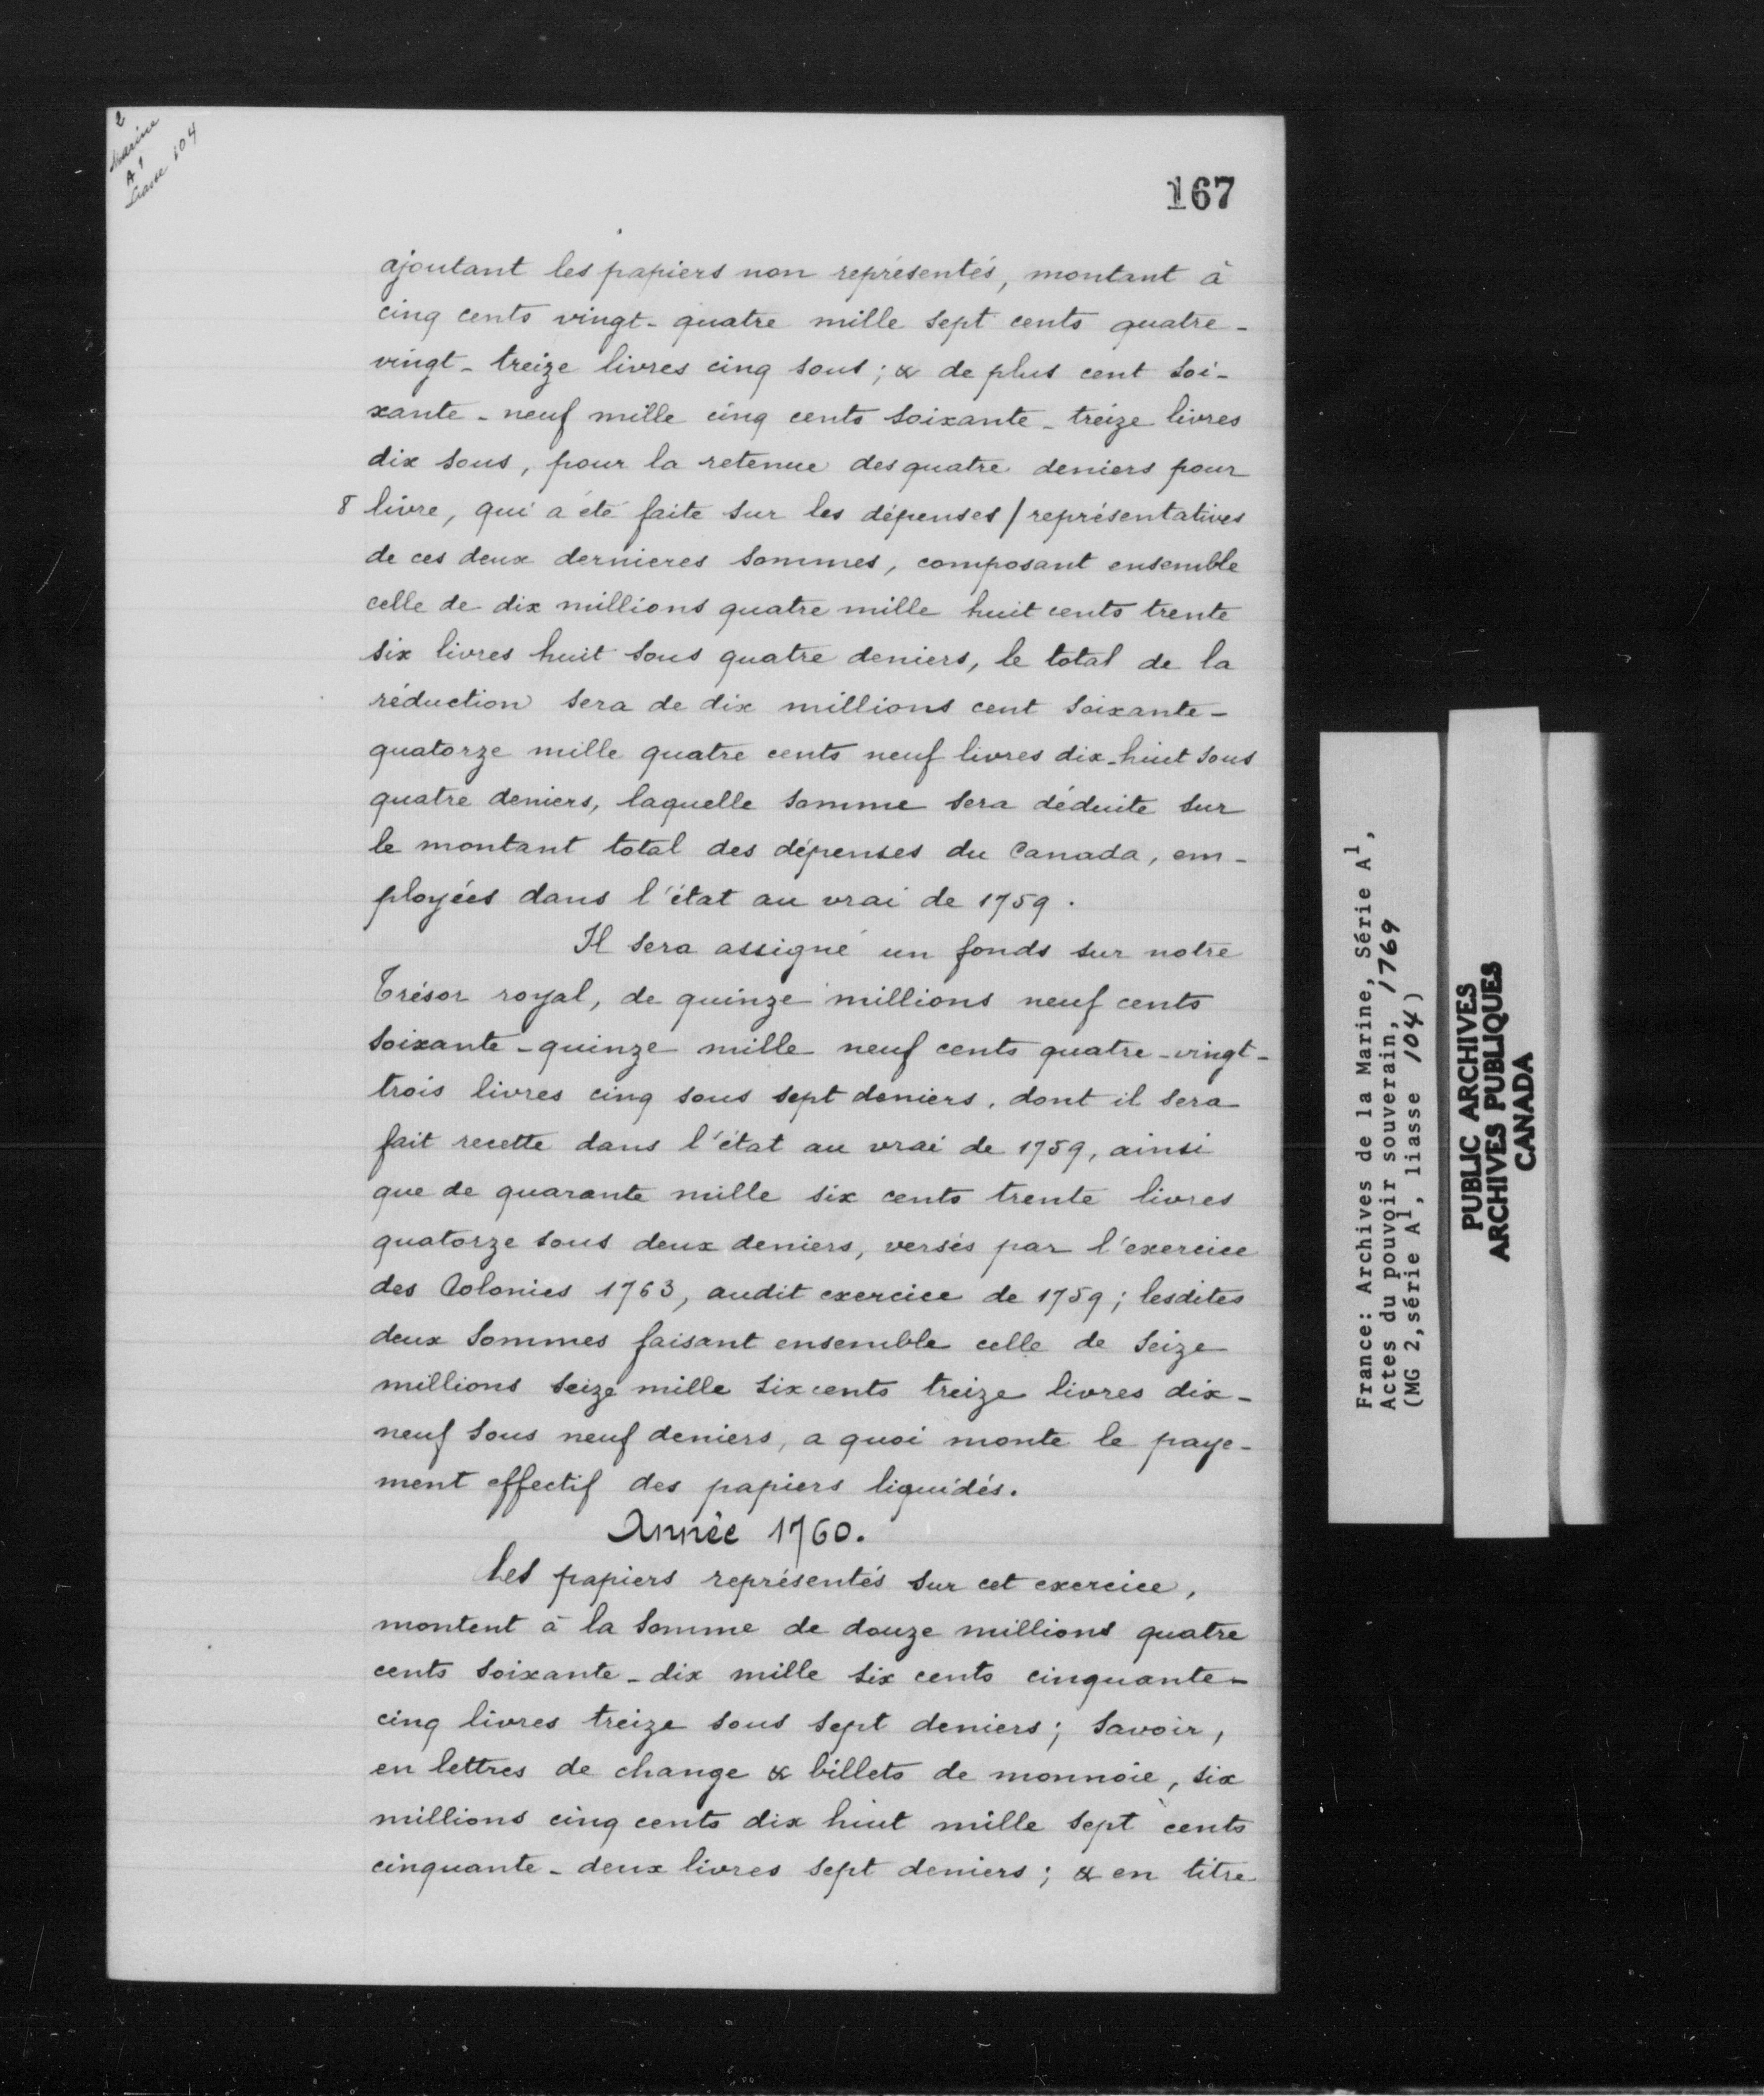 2
Marine
A 1
Liasse 104
167
ajoutant les papiers non représentés, montant à
cinq cents vingt-quatre mille sept cents quatre-
vingt-treize livres cinq sous; & de plus cent soi-
xante-neuf mille cinq cents soixante-treize livres
dix sous, pour la retenue des quatre deniers pour
8 livre, qui a été faite sur les dépenses / représentatives
de ces deux dernieres sommes, composant ensemble
celle de dix millions quatre mille huit cents trente
six livres huit sous quatre deniers, le total de la
réduction sera de dix millions cent soixante-
quatorze mille quatre cents neuf livres dix-huit sous
quatre deniers, laquelle somme sera déduite sur
le montant total des dépenses du Canada, em-
ployées dans l'état au vrai de 1759.
Il sera assigné un fonds sur notre
Trésor royal, de quinze millions neuf cents
soixante-quinze mille neuf cents quatre-vingt-
trois livres cinq sous sept deniers, dont il sera
fait recette dans l'état au vrai de 1759, ainsi
que de quarante mille six cents trente livres
quatorze sous deux deniers, versés par l'exercice
des Colonies 1763, audit exercice de 1759; lesdites
deux sommes faisant ensemble celle de seize
millions seize mille six cents treize livres dix-
neuf sous neuf deniers, a quoi monte le paye-
ment effectif des papiers liquidés.
Année 1760.
Les papiers représentés sur cet exercice,
montent à la somme de douze millions quatre
cents soixante-dix mille six cents cinquante-
cinq livres treize sous sept deniers; savoir,
en lettres de change & billets de monnoie, six
millions cinq cents dix huit mille sept cents
cinquante-deux livres sept deniers; & en titre
France: Archives de la Marine, Série A1,
Actes du pouvoir souverain, 1769
(MG 2, série A1, liasse 104)
PUBLIC ARCHIVES
ARCHIVES PUBLIQUES
CANADA